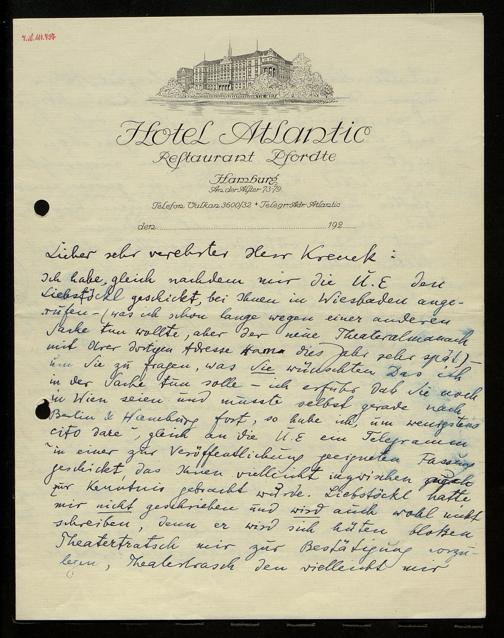 Hotel Atlantic
Restaurant Pfordte
Hamburg
An der Alster 73-79
Telefon Vulkan 3600/32 * Telegr. Adr. Atlantic
den 192
Lieber sehr verehrter Herr Krenek :
Ich habe, gleich nachdem mir die U.E den
Liebstöckl geschickt, bei Ihnen in Wiesbaden ange-
rufen – (was ich schon lange wegen einer anderen
Sache tun wollte, aber der neue Theateralmanach
mit Ihrer dortigen Adresse kam dies Jahr sehr spät) –
um Sie zu fragen, was Sie wünschten das ich
in der Sache tun solle – ich erfuhr daß Sie noch
in Wien seien und musste selbst gerade nach
Berlin & Hamburg fort, so habe ich, um wenigstens
"cito dare", gleich an die U.E ein Telegramm
"in einer zur Veröffentlichung geeigneten Fassung
geschickt, das Ihnen vielleicht inzwischen auch
zur Kenntnis gebracht wurde. Liebstöckl hatte
mir nicht geschrieben und wird auch wohl nicht
schreiben, denn er wird sich hüten bloßen
Theatertratsch mir zur Bestätigung vorzu-
legen, Theatertrasch den vielleicht mir